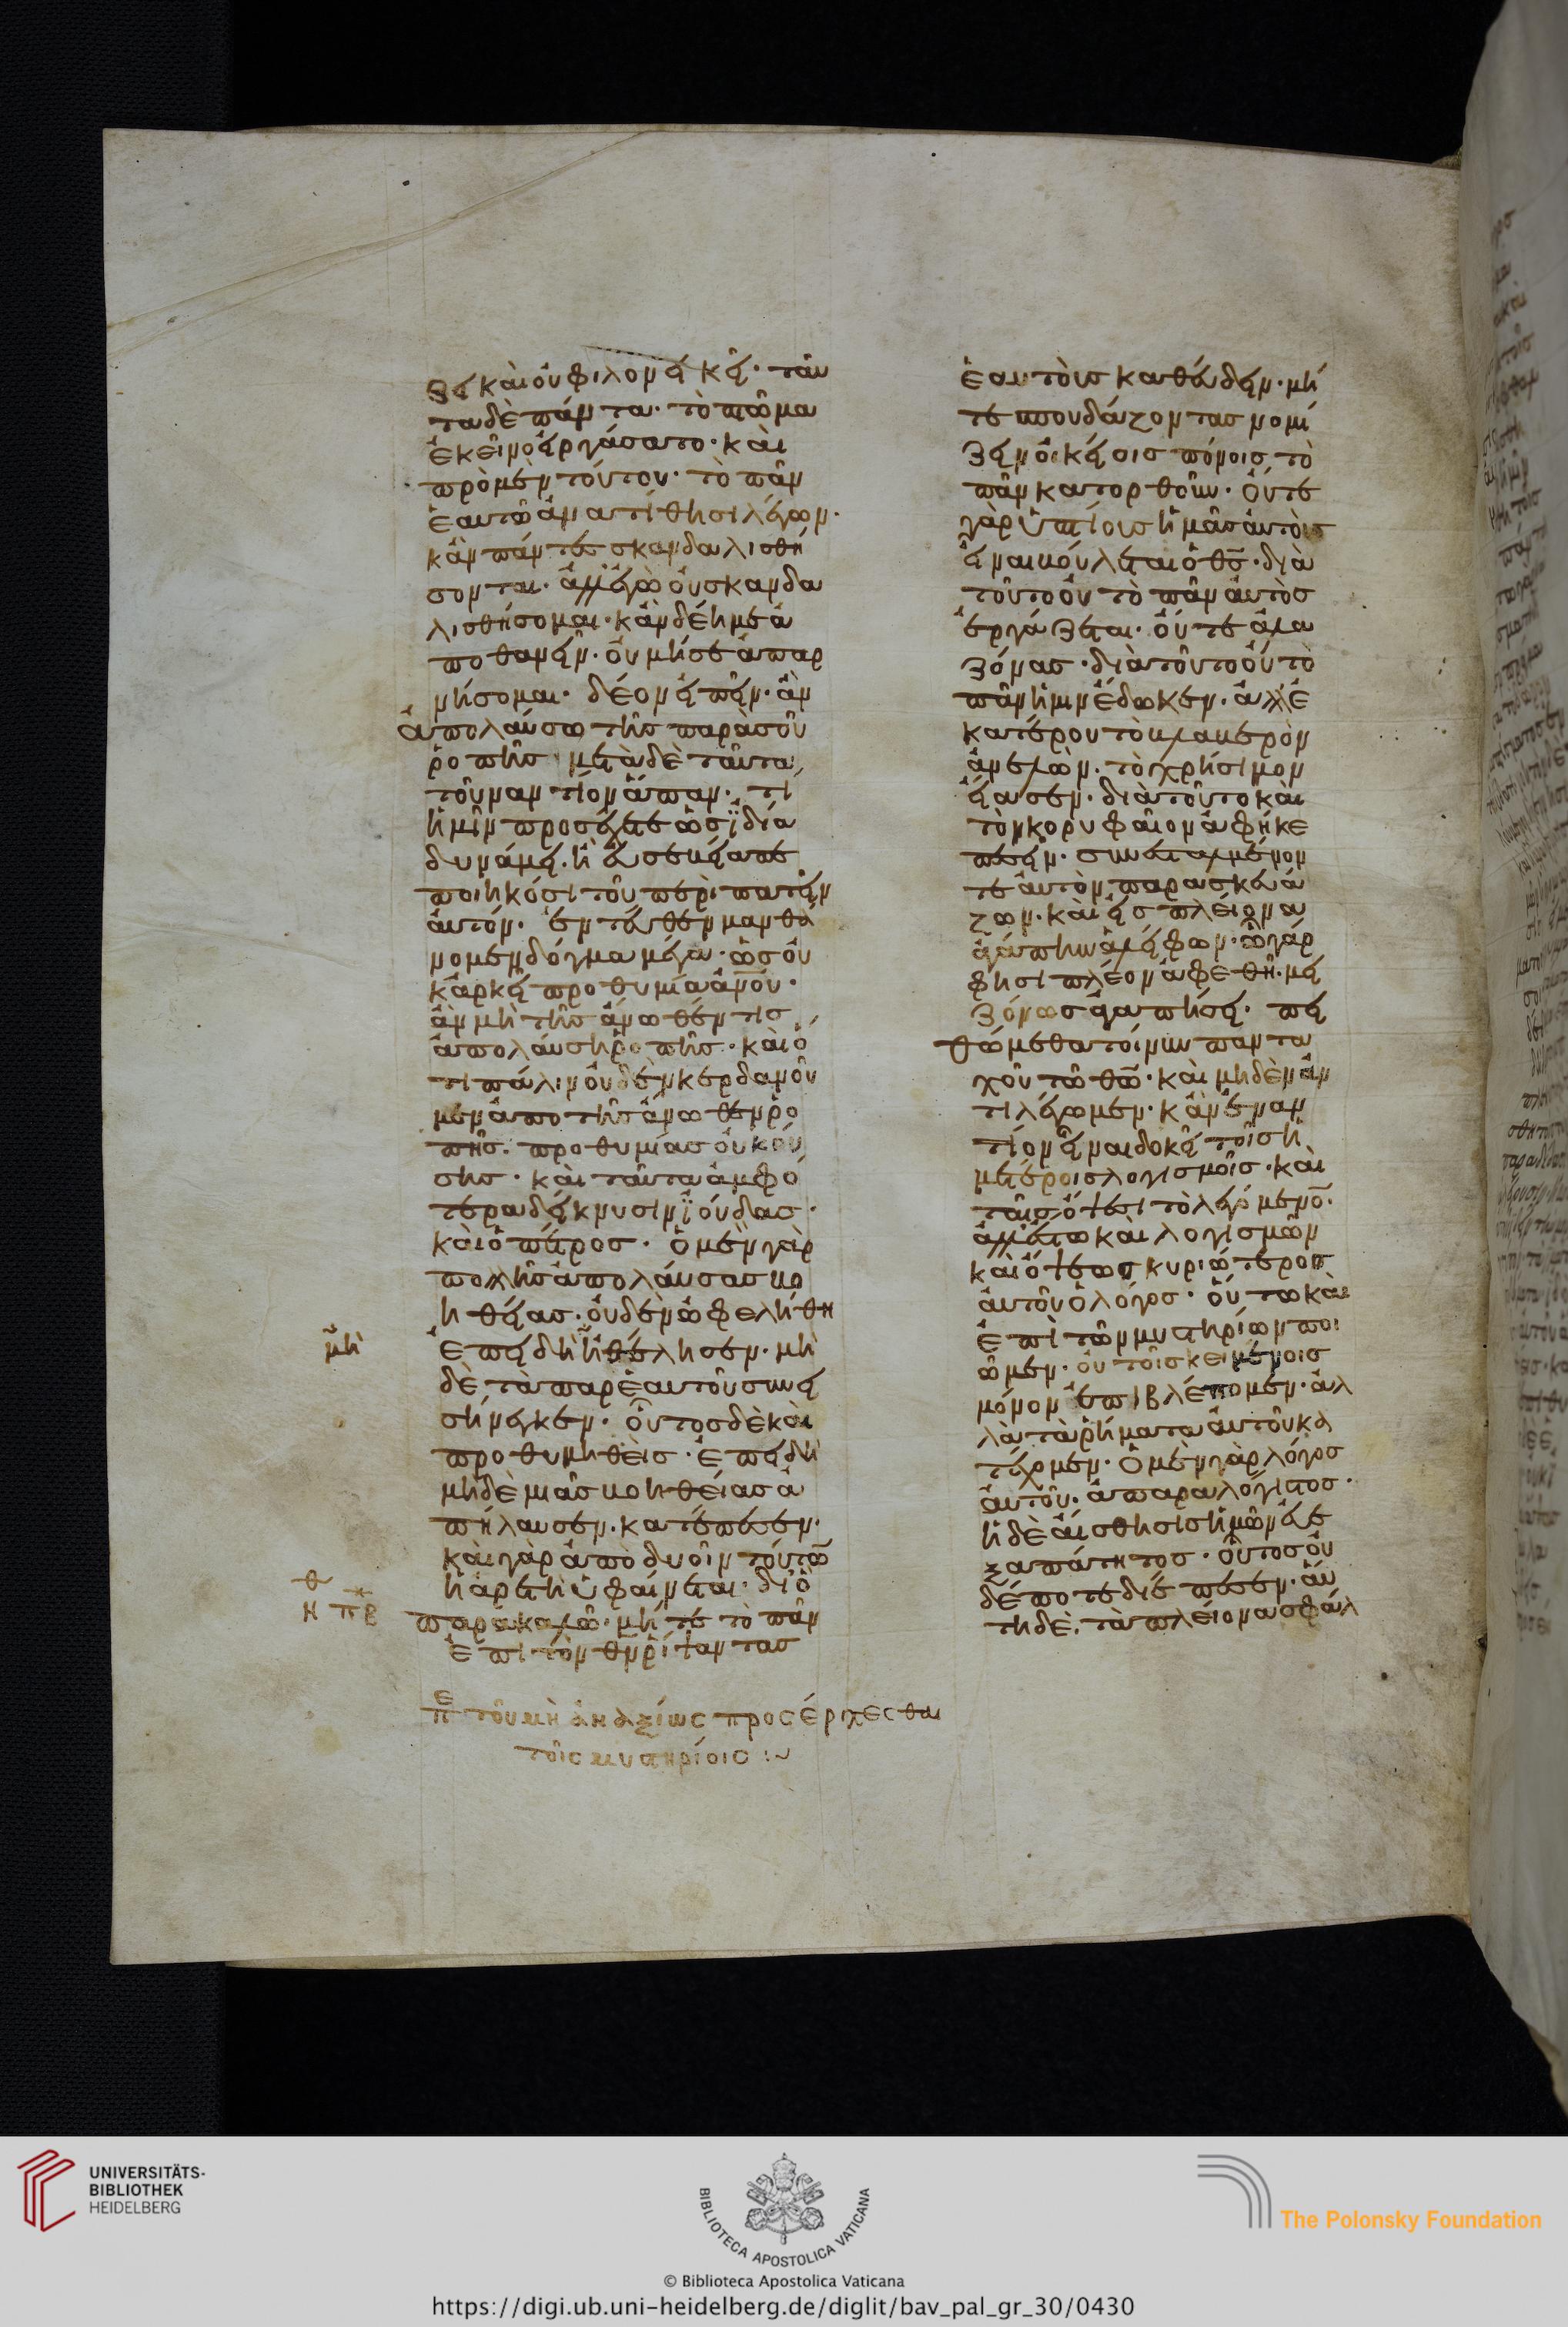 ζει καὶ οὐ φιλονεικεῖ· ταῦ
τα δὲ πάντα· τὸ πῶμα
ἐκεῖνο εἰργάσατο· καὶ
πρὸ μὲν τούτου· τὸ πᾶν
ἑαυτῷ ἀνατίθησι λέγων·
κἂν πάντες σκανδαλισθή
σονται· ἀλλἐγὼ οὐ σκανδα
λισθήσομαι· κἂν δέη με ἀ
ποθανεῖν· οὐ μή σε ἀπαρ
νήσομαι· δέον εἰπεῖν· ἂν
ἀπολαύσω τῆς παρὰ σοῦ
ῥοπῆς μετὰ δὲ ταῦτα,
τοὐναντίον ἅπαν· τί
ἡμῖν προσέχετε ὡς ἰδία
δυνάμει· ἢ εὐσεβεία πε
ποιηκόσι τοῦ περιπατεῖν
αὐτόν· ἐντεῦθεν μανθά
νομεν δόγμα μέγα· ὡς οὐ
κ ἀρκεῖ προθυμία ἀνου·
ἂν μὴ τῆς ἄνωθέν τις
ἀπολαύση ῥοπῆς· καὶ ὅ
τι πάλιν οὐδὲν κερδανοῦ
μεν ἀπο τῆς ἄνωθεν ῥο
πῆς· προθυμίας οὐκ οὔ
σης· καὶ ταῦτα ἀμφό
τερα δείκνυσιν ϊούδας·
καὶ ὁ πέτρος· ὁ μὲν γὰρ
πολλῆς ἀπολαύσας βο
ηθείας· οὐδὲν ὠφελήθη
μὴ
ἐπειδὴ ἠθέλησεν· μὴ
δὲ τὰ παρἑαυτοῦ συνει
σήνεγκεν· οὗτος δὲ καὶ
προθυμηθεὶς· ἐπειδὴ
μηδὲ μιᾶς βοηθείας ἀ
πήλαυσεν· κατέπεσεν·
καὶ γὰρ ἀπὸ δυοῖν τούτω
ἡ ἀρετὴ ὑφαίνεται· διὸ
παρακαλῶ· μήτε τὸ πᾶν
ἐπὶ τὸν θν ῥίψαντας
π ε τοῦ μὴ ἀναξίως προσέρχεσθαι
τοῖς μυστηρίοις :~
ἑαυτοὺς καθεύδειν· μή
τε σπουδάζοντας νομί
ζειν οἰκείοις πόνοις τὸ
πᾶν κατορθοῦν· οὔτε
γὰρ ὑπτίους ἡμᾶς αὐτοὺς
εἶναι βούλεται ὁ θς· διὰ
τοῦτο οὐ τὸ πᾶν αὐτὸς
ἐργάζεται· οὔτε ἀλα
ζόνας· διὰ τοῦτο οὐ τὸ
πᾶν ἡμῖν ἔδωκεν· ἀλλἑ
κατέρου τὸ βλαβερὸν
ἀνελὼν· τὸ χρήσιμον
εἴασεν· διὰ τοῦτο καὶ
τὸν κορυφαῖον ἀφῆκε
πεσεῖν· συνεσταλμένον
τε αὐτὸν παρασκευά
ζων· καὶ εἰς πλείονα
ἀγάπην ἀλείφων· ᾧ γάρ
φησι πλέον ἀφεθῆ· μει
ζόνως ἀγαπήσει· πει
θώμεθα τοίνυν παντα
χοῦ τῷ θῶ· καὶ μηδὲν ἀν
τιλέγωμεν· κἂν ἐναν
τίον εἶναι δοκεῖ τοῖς ἡ
μετέροις λογισμοῖς· καὶ
ταῖς ὄψεσι τὸ λεγόμενο·
ἀλλἔστω καὶ λογισμῶν
καὶ ὄψεως κυριώτερος
αὐτοῦ ὁ λόγος· οὕτω καὶ
ἐπὶ τῶν μυστηρίων ποι
ῶμεν· οὐ τοῖς κειμένοις
μόνον ἐπιβλέπομεν· ἀλ
λὰ τὰ ῥήματα αὐτοῦ κα
τέχομεν· ὁ μὲν γὰρ λόγος
αὐτοῦ· ἀπαραλόγιστος·
ἡ δὲ αἴσθησις ἡμῶν εὐε
ξαπάτητος· οὗτος οὐ
δέποτε διέπεσεν· αὕ
τη δὲ· τὰ πλείονα σφάλ
UNIVERSITÄTS-
BIBLIOTHEK
HEIDELBERG
BIBLIOTECA APOSTOLICA VATICANA
The Polonsky Foundation
© Biblioteca Apostolica Vaticana
https://digi.ub.uni-heidelberg.de/diglit/bav_pal_gr_30/0430